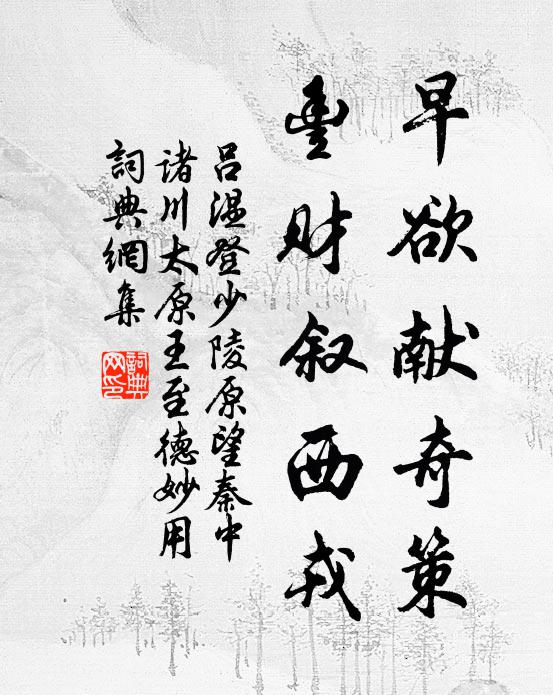 早欲献奇策
豊财叙西戎
吕温登少陵原望秦中
诸川太原王至德妙用
詞典網集
詞典网印